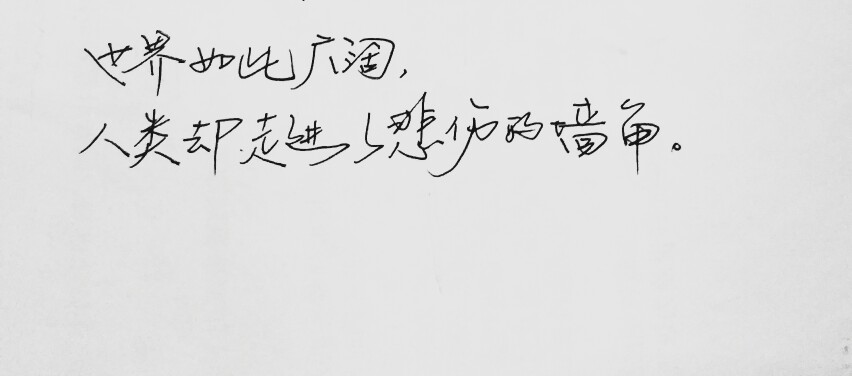 世界如此广阔，
人类却走进了悲伤的墙角。